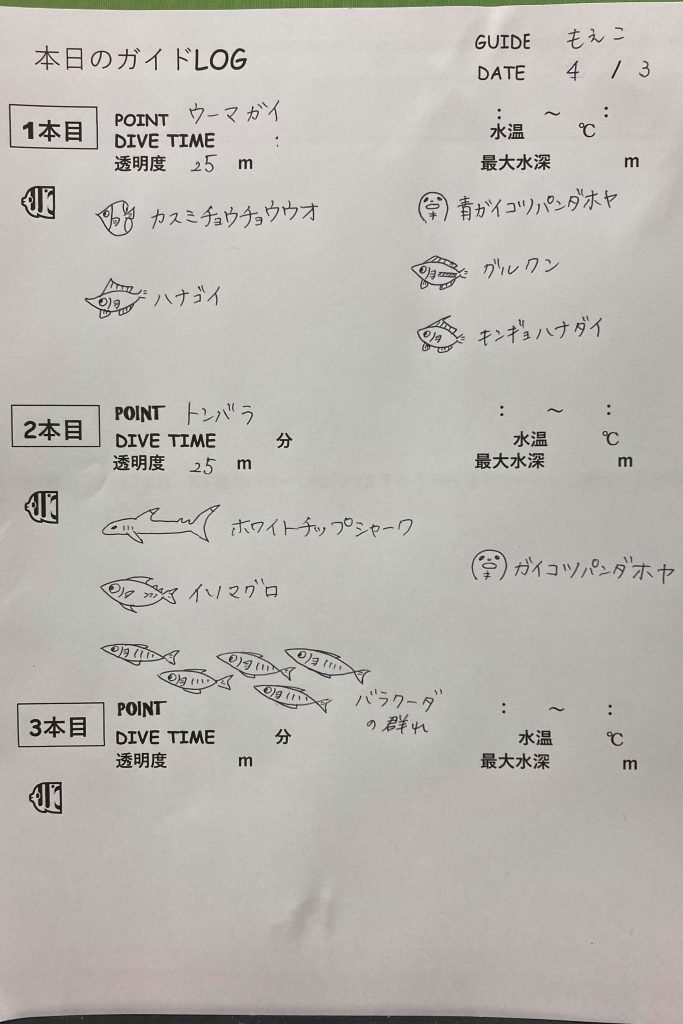 本日のガイドLOG
GUIDE もえこ
DATE 4 / 3
1本目
POINT ウーマガイ
: ～ :
DIVE TIME :
水温 ℃
透明度 25 m
最大水深 m
カスミチョウチョウウオ
青ガイコツパンダホヤ
グルクン
ハナゴイ
キンギョハナダイ
2本目
POINT トンバラ
: ～ :
DIVE TIME 分
水温 ℃
透明度 25 m
最大水深 m
ホワイトチップシャーク
ガイコツパンダホヤ
イソマグロ
バラクーダ
の群れ
3本目
POINT
: ～ :
DIVE TIME 分
水温 ℃
透明度 m
最大水深 m